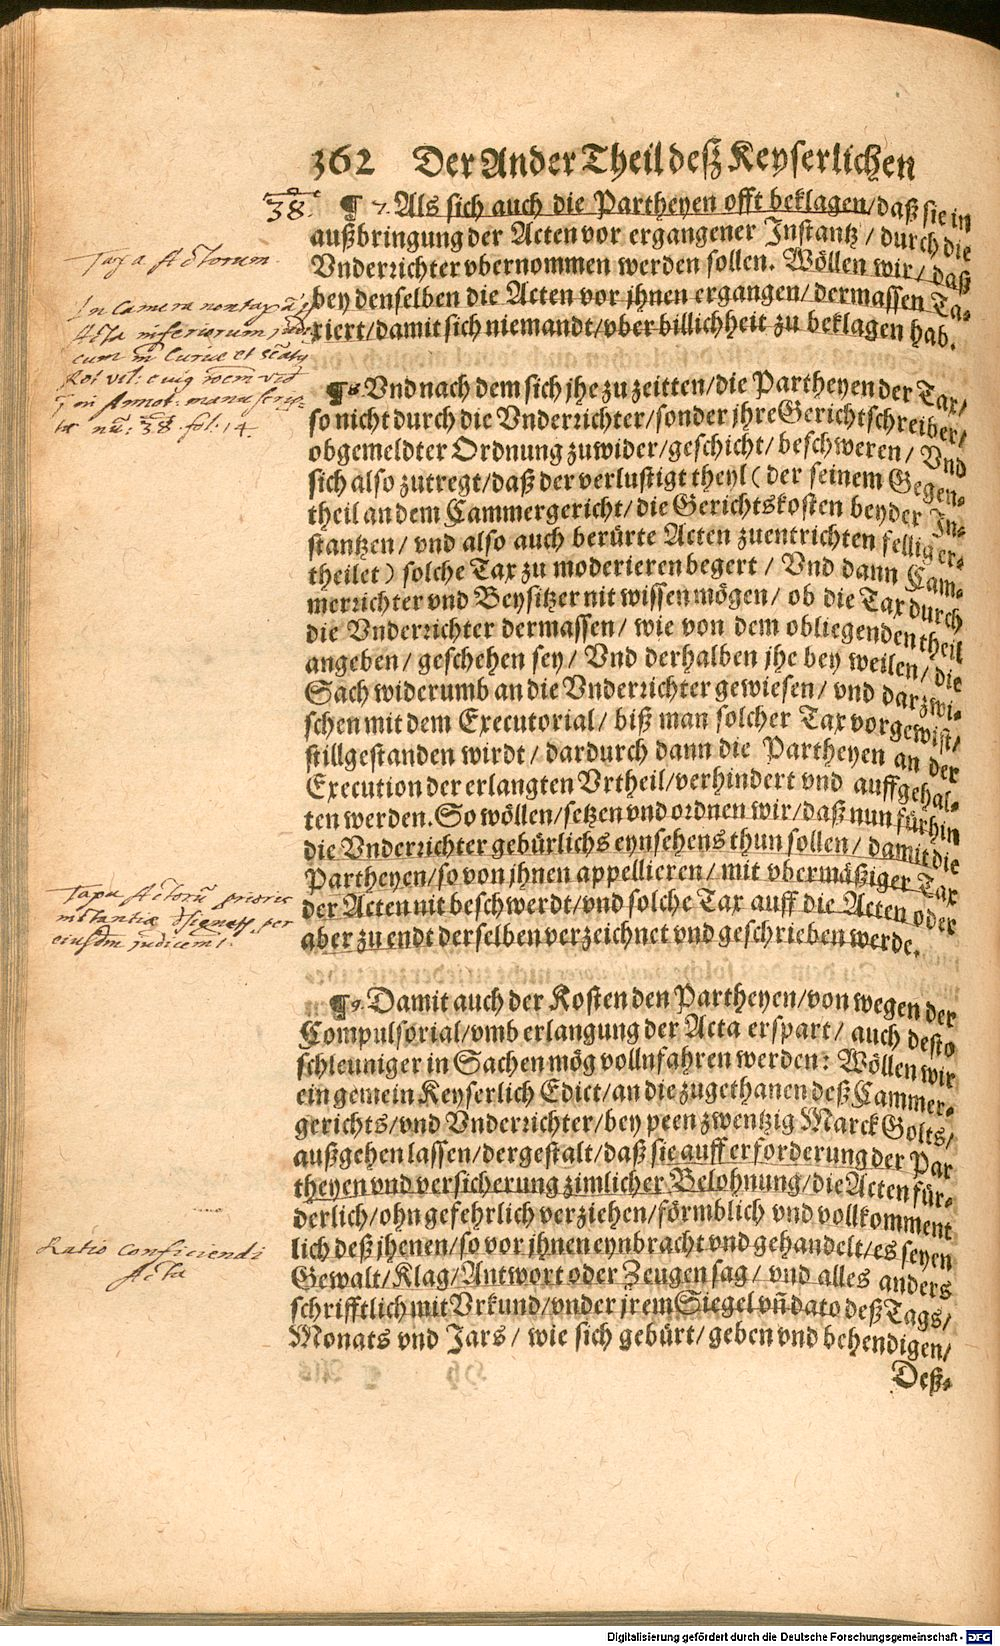 362 Der Ander Theil deß Keyserlichen
38.
¶ 7. Als sich auch die Partheyen offt beklagen/daß sie in
außbringung der Acten vor ergangener Instantz / durch die
Vnderrichter vbernommen werden sollen. Wöllen wir/ daß
bey denselben die Acten vor jhnen ergangen/ dermassen Ta-
xiert/damit sich niemandt/vber billichheit zu beklagen hab.
Taxa Actorum.
In Camera non
Acta inferiorum
cum in Curiae et
in Annot: manu scrip-
tis nu: 38 fol. 14.
¶ 8. Vnd nach dem sich jhe zu zeitten/die Partheyen der Tax/
so nicht durch die Vnderrichter/sonder jhre Gerichtschreiber/
obgemeldter Ordnung zuwider/geschicht/ beschweren/ Vnd
sich also zutregt/daß der verlustigt theyl ( der seinem Gegen-
theil an dem Cammergericht/die Gerichtskosten beyder In-
stantzen/ vnd also auch berürte Acten zuentrichten fellig er-
theilet ) solche Tax zu moderieren begert / Vnd dann Cam-
merrichter vnd Beysitzer nit wissen mögen/ ob die Tax durch
die Vnderrichter dermassen/ wie von dem obliegenden theil
angeben/ geschehen sey/ Vnd derhalben jhe bey weilen/ die
Sach widerumb an die Vnderrichter gewiesen/ vnd darzwi-
schen mit dem Executorial/ biß man solcher Tax vorgewist/
stillgestanden wirdt/ dardurch dann die Partheyen an der
Execution der erlangten Vrtheil/verhindert vnd auffgehal-
ten werden. So wöllen/setzen vnd ordnen wir/daß nun fürhin
die Vnderrichter gebürlichs eynsehens thun sollen/ damit die
Partheyen/so von jhnen appellieren/ mit vbermäßiger Tax
der Acten nit beschwerdt/vnd solche Tax auff die Acten oder
aber zu endt derselben verzeichnet vnd geschrieben werde.
Taxa Actorū prioris
instantiae per
judicem.
¶ 9. Damit auch der Kosten den Partheyen/von wegen der
Compulsorial/vmb erlangung der Acta erspart/ auch desto
schleuniger in Sachen mög vollnfahren werden: Wöllen wir
ein gemein Keyserlich Edict/an die zugethanen deß Cammer-
gerichts/vnd Vnderrichter/bey peen zwentzig Marck Golts/
außgehen lassen/dergestalt/daß sie auff erforderung der Par
theyen vnd versicherung zimlicher Belohnung/die Acten für-
derlich/ohn gefehrlich verziehen/förmblich vnd vollkomment
lich deß jhenen/so vor jhnen eynbracht vnd gehandelt/es seyen
Gewalt/Klag/Antwort oder Zeugen sag/ vnd alles anders
schrifftlich mit Vrkund/vnder jrem Siegel vn̄ dato deß Tags/
Monats vnd Jars/ wie sich gebürt/ geben vnd behendigen/
Ratio conficiendi
Acta
Deß-
Digitalisierung gefördert durch die Deutsche Forschungsgemeinschaft - DFG